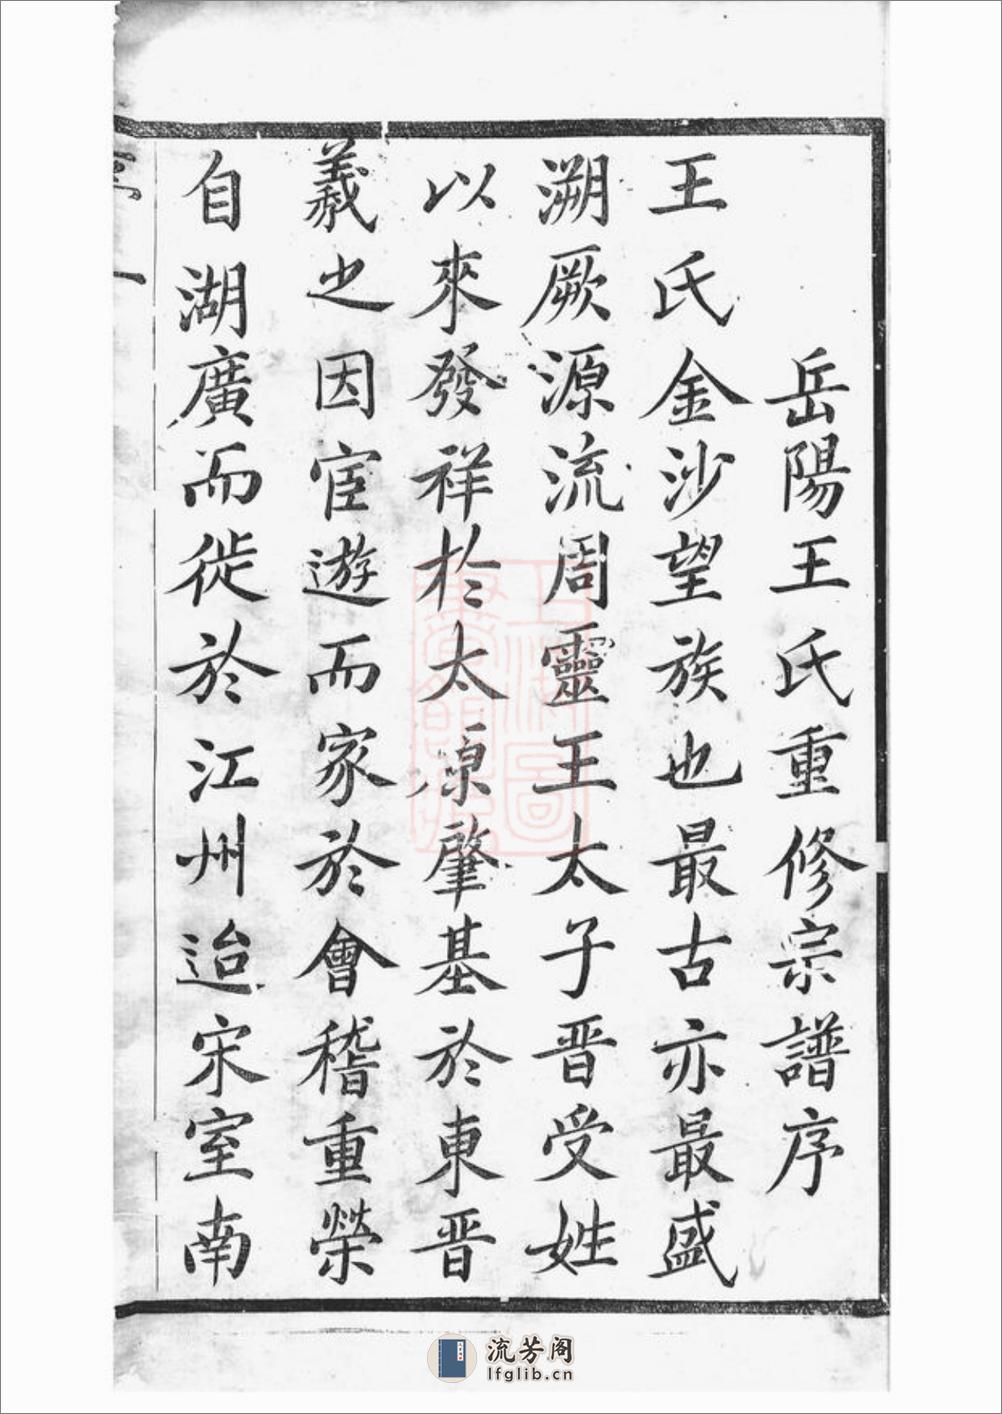 岳陽王氏重修宗譜序
王氏金沙望族也最古亦最盛
溯厥源流周靈王太子晋受姓
以來發祥於太原肇基於東晋
羲之因宦遊而家於會稽重榮
自湖廣而徙於江州迨宋室南
上海圖書館藏
流芳阁
lfglib.cn